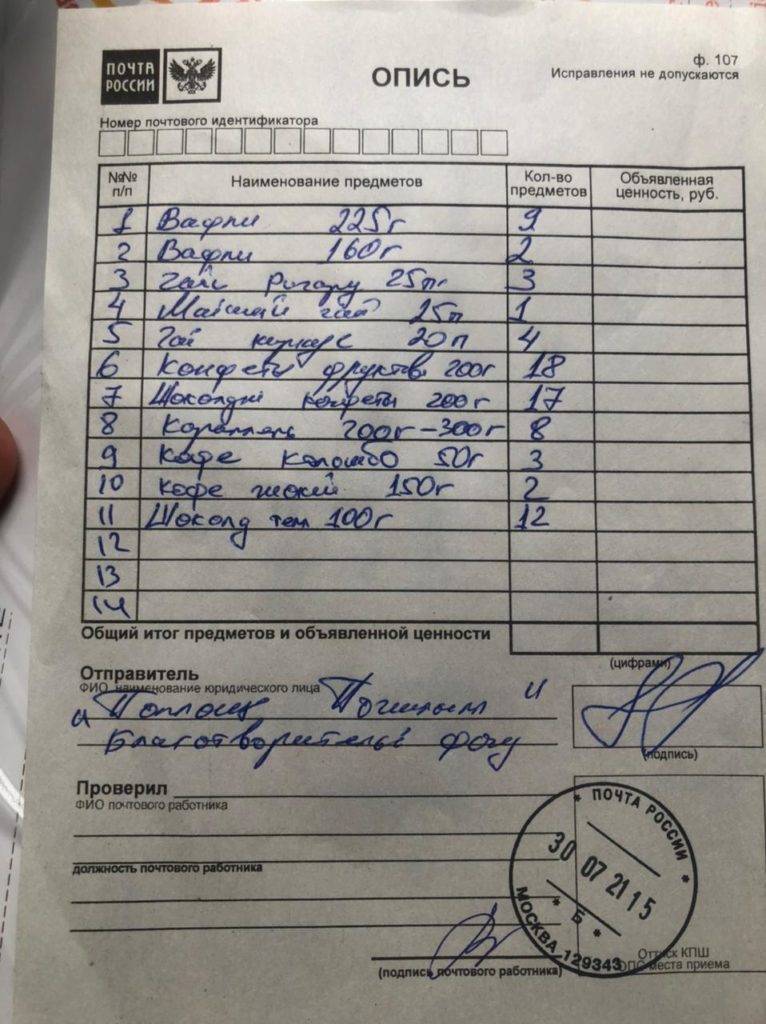 ПОЧТА РОССИИ
ОПИСЬ
ф. 107
Исправления не допускаются
Номер почтового идентификатора
№№ п/п Наименование предметов Кол-во предметов Объявленная ценность, руб.
1 Вафли 225г 9
2 Вафли 160г 2
3 Чай Ричард 25п 3
4 чай 25п 1
5 Чай 20п 4
6 Конфеты 200г 18
7 конфеты 200г 17
8 Карамель 200г-300г 8
9 Кофе Коломбо 50г 3
10 Кофе 150г 2
11 Шоколд тем 100г 12
12
13
14
Общий итог предметов и объявленной ценности
(цифрами)
Отправитель
ФИО, наименование юридического лица
"
Благотворительный фонд
(подпись)
Проверил
ФИО почтового работника
должность почтового работника
(подпись почтового работника)
ПОЧТА РОССИИ
30 07 21 15
Б
МОСКВА 129343
Оттиск КПШ
ОПС места приема